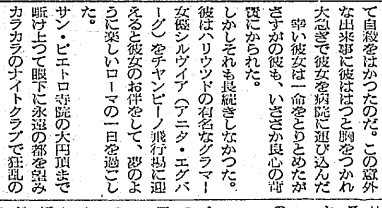 て自殺をはかつたのだ。この意外
な出来事に彼ははつと胸をつかれ
大急ぎで彼女を病院に運び込んだ
幸い彼女は一命をとりとめたが
さすがの彼も、いささか良心の苛
責にかられた。
しかしそれも長続きしなかつた。
彼はハリウツドの有名なグラマー
女優シルヴイア(アニタ・エグバ
ーグ)をチヤンピーノ飛行場に迎
えると彼女のお伴をして、夢のよ
うに楽しいローマの一日を過ごし
た。
サン・ピエトロ寺院の大円頂まで
駈け上つて眼下に永遠の都を望み
カラカラのナイトクラブで狂乱の